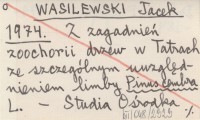 WASILEWSKI Jacek
1974. Z zagadnień
zoochorii drzew w Tatrach
ze szczególnym uwzględ-
nieniem limby Pinus cembra
L. – Studia Ośrodka